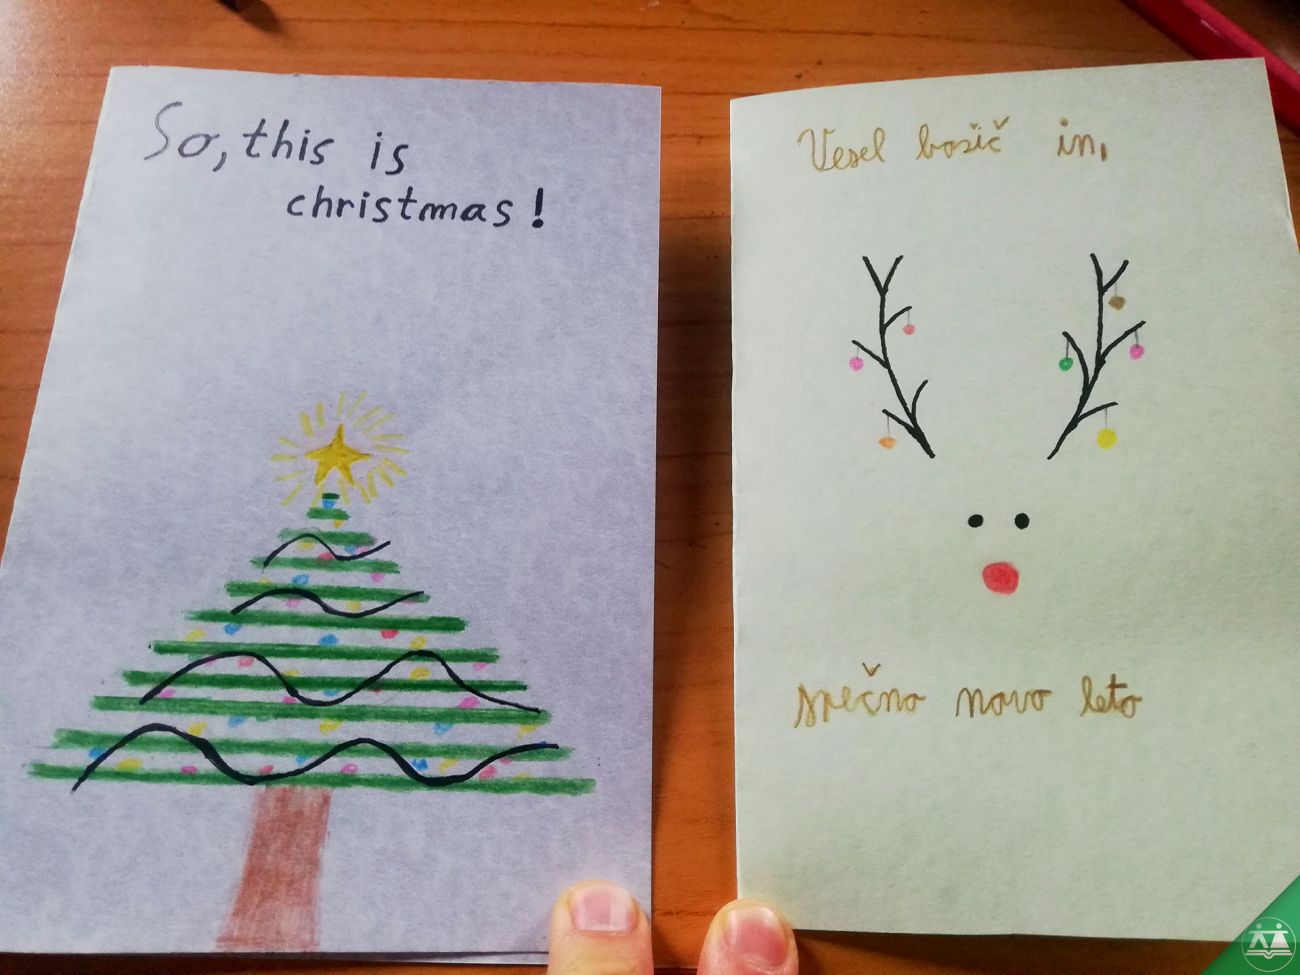 So, this is
christmas!
Vesel božič in,
srečno novo leto